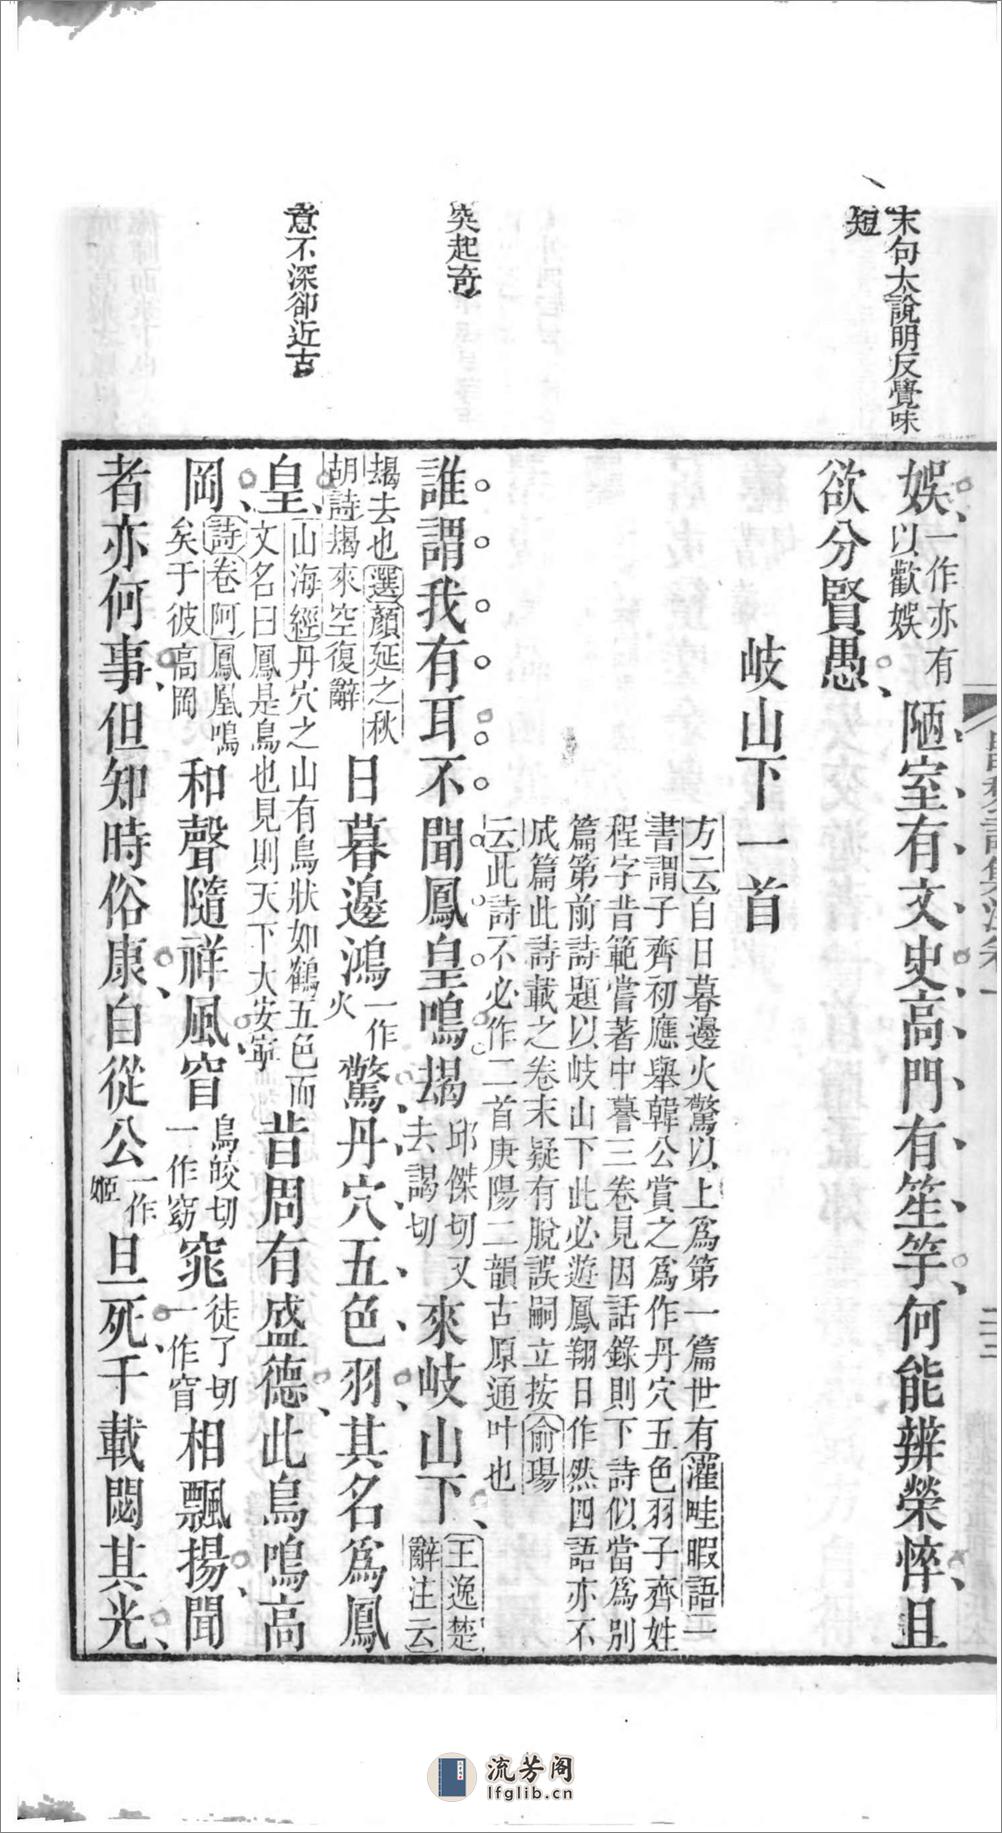 末句太說明反覺味
短
突起奇
意不深卻近古
娛一作亦有以歡娛陋室有文史高門有笙竽何能辨榮悴且
欲分賢愚
岐山下一首
方云自日暮邊火驚以上為第一篇世有灌畦暇語一
書謂子齊初應舉韓公賞之為作丹穴五色羽子齊姓
程字昔範嘗著中謩三卷見因話錄則下詩似當為別
篇第前詩題以岐山下此必遊鳳翔日作然四語亦不
成篇此詩載之卷末疑有脫誤嗣立按俞瑒
云此詩不必作二首庚陽二韻古原通叶也
誰謂我有耳不聞鳳皇鳴朅邱傑切又去謁切來岐山下王逸楚辭注云
朅去也選顏延之秋胡詩朅來空復辭日暮邊鴻一作火驚丹穴五色羽其名為鳳
皇山海經丹穴之山有鳥狀如鶴五色而文名曰鳳是鳥也見則天下大安寧昔周有盛德此鳥鳴高
岡詩卷阿鳳凰鳴矣于彼高岡和聲隨祥風窅烏皎切一作窈窕徒了切一作窅相飄揚聞
者亦何事但知時俗康自從公一作姬旦死千載閟其光
卷一
二三
流芳阁
lfglib.cn